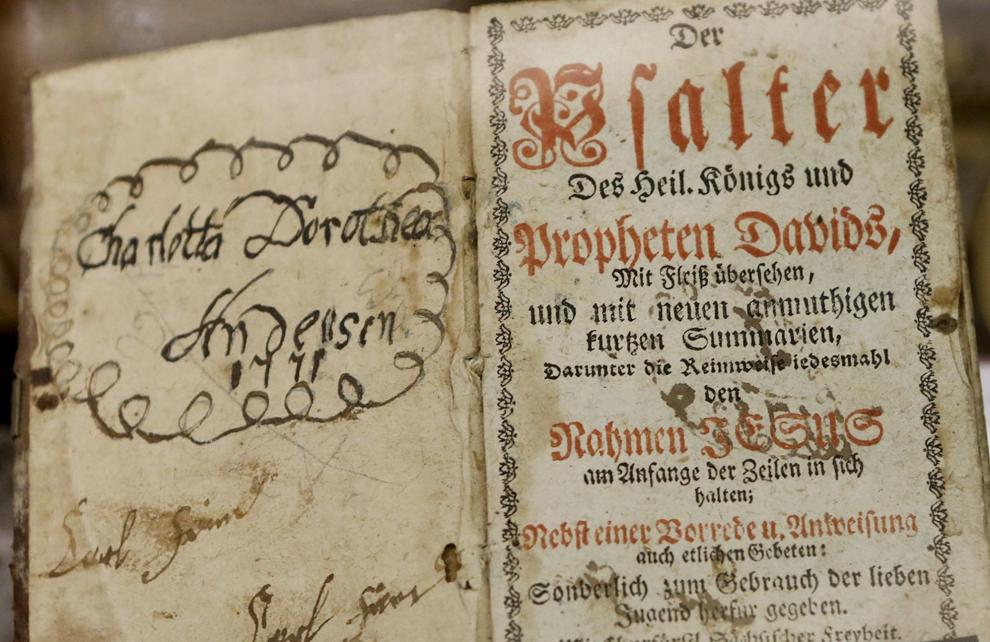 Charlotta Dorothea
Andersen
1771
Der
Psalter
Des Heil. Königs und
Propheten Davids,
Mit Fleiß übersehen,
und mit neuen anmuthigen
kurtzen Summarien,
Darunter die Reimweise iedesmahl
den
Nahmen JESUS
am Anfange der Zeilen in sich
halten;
Nebst einer Vorrede u. Anweisung
auch etlichen Gebeten:
Sonderlich zum Gebrauch der lieben
Jugend herfür gegeben.
Freyheit